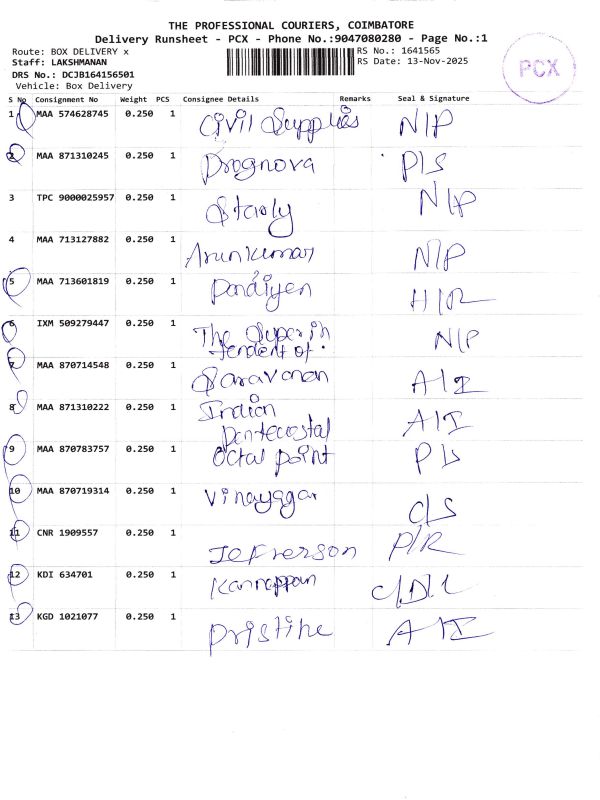 THE PROFESSIONAL COURIERS, COIMBATORE
Delivery Runsheet - PCX - Phone No.:9047080280 - Page No.:1
Route: BOX DELIVERY x RS No.: 1641565
Staff: LAKSHMANAN RS Date: 13-Nov-2025
DRS No.: DCJB164156501
Vehicle: Box Delivery
PCX
S No Consignment No Weight PCS Consignee Details Remarks Seal & Signature
1 MAA 574628745 0.250 1 Civil Supplies N/P
2 MAA 871310245 0.250 1 Prognova P/S
3 TPC 9000025957 0.250 1 N/P
4 MAA 713127882 0.250 1 Arunkumar N/P
5 MAA 713601819 0.250 1 Pandiyen H/R
6 IXM 509279447 0.250 1 The Superin N/P
tendent of
7 MAA 870714548 0.250 1 Saravanan A/I
8 MAA 871310222 0.250 1 Indian A/I
Pentecostal
9 MAA 870783757 0.250 1 Octal point P/S
10 MAA 870719314 0.250 1 Vinayagar C/S
11 CNR 1909557 0.250 1 Jefrerson P/R
12 KDI 634701 0.250 1 Kannappan
13 KGD 1021077 0.250 1 Pristine A/I